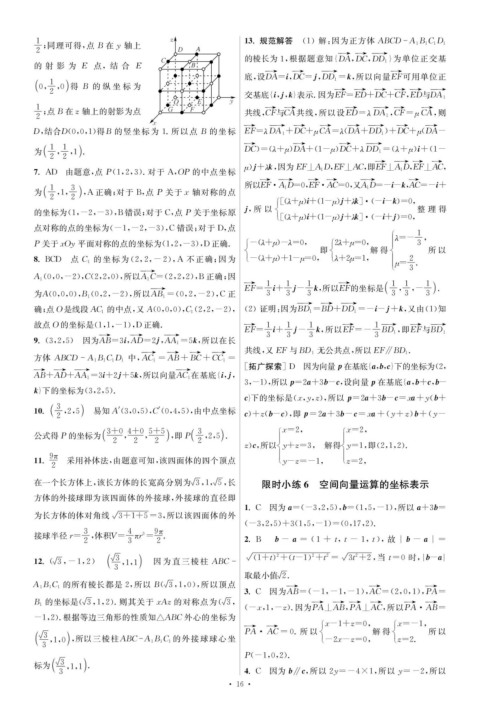 1/2;同理可得,点 B 在 y 轴上
的射影为 E 点, 结合 E
(0,1/2,0)得 B 的纵坐标为
1/2;点 B 在 z 轴上的射影为点
D,结合D(0,0,1)得 B 的竖坐标为 1. 所以点 B 的坐标
为(1/2,1/2,1).
7. AD 由题意,点 P(1,2,3). 对于 A,OP 的中点坐标
为(1/2,1,3/2),A 正确;对于 B,点 P 关于 x 轴对称的点
的坐标为(1,-2,-3),B错误;对于 C,点 P 关于坐标原
点对称的点的坐标为(-1,-2,-3),C 错误;对于 D,点
P 关于 xOy 平面对称的点的坐标为(1,2,-3),D 正确.
8. BCD 点 C₁ 的坐标为(2,2,-2),A 不正确;因为
A₁(0,0,-2),C(2,2,0),所以A₁C=(2,2,2),B 正确;因
为A(0,0,0),B₁(0,2,-2),所以AB₁=(0,2,-2),C 正
确;点 O 是线段 AC₁ 的中点,又 A(0,0,0),C₁(2,2,-2),
故点 O 的坐标是(1,1,-1),D 正确.
9. (3,2,5) 因为AB=3i,AD=2j,AA₁=5k,所以在长
方体 ABCD-A₁B₁C₁D₁ 中,AC₁=AB+BC+CC₁=
AB+AD+AA₁=3i+2j+5k,所以向量AC₁在基底{i,j,
k}下的坐标为(3,2,5).
10. (3/2,2,5) 易知 A′(3,0,5),C′(0,4,5),由中点坐标
公式得 P 的坐标为(3+0/2,4+0/2,5+5/2),即 P(3/2,2,5).
11. 9π/2 采用补体法,由题意可知,该四面体的四个顶点
在一个长方体上,该长方体的长宽高分别为√3,1,√5,长
方体的外接球即为该四面体的外接球,外接球的直径即
为长方体的体对角线 √3+1+5=3,所以该四面体的外
接球半径 r=3/2,体积V=4/3πr³=9π/2.
12. (√3,-1,2) (√3/3,1,1) 因为直三棱柱 ABC-
A₁B₁C₁ 的所有棱长都是 2,所以 B(√3,1,0),所以顶点
B₁ 的坐标是(√3,1,2). 则其关于 xAz 的对称点为(√3,
-1,2). 根据等边三角形的性质知△ABC 外心的坐标为
(√3/3,1,0),所以三棱柱ABC-A₁B₁C₁ 的外接球球心坐
标为(√3/3,1,1).
13. 规范解答 (1)解:因为正方体 ABCD-A₁B₁C₁D₁
的棱长为 1,根据题意知{DA,DC,DD₁}为单位正交基
底,设DA=i,DC=j,DD₁=k,所以向量EF可用单位正
交基底{i,j,k}表示. 因为EF=ED+DC+CF,ED与DA₁
共线,CF与CA共线,所以设ED=λDA₁,CF=μCA,则
EF=λDA₁+DC+μCA=λ(DA+DD₁)+DC+μ(DA-
DC)=(λ+μ)DA+(1-μ)DC+λDD₁=(λ+μ)i+(1-
μ)j+λk,因为 EF⊥A₁D,EF⊥AC,即EF⊥A₁D,EF⊥AC,
所以EF·A₁D=0,EF·AC=0,又A₁D=-i-k,AC=-i+
j,所以{[(λ+μ)i+(1-μ)j+λk]·(-i-k)=0, [(λ+μ)i+(1-μ)j+λk]·(-i+j)=0, 整理得
{-(λ+μ)-λ=0, -(λ+μ)+1-μ=0, 即{2λ+μ=0, λ+2μ=1, 解得{λ=-1/3, μ=2/3. 所以
EF=1/3i+1/3j-1/3k,所以EF的坐标是(1/3,1/3,-1/3).
(2)证明:因为BD₁=BD+DD₁=-i-j+k,又由(1)知
EF=1/3i+1/3j-1/3k,所以EF=-1/3BD₁,即EF与BD₁
共线,又 EF 与 BD₁ 无公共点,所以 EF∥BD₁.
[拓广探索] D 因为向量 p 在基底{a,b,c}下的坐标为(2,
3,-1),所以 p=2a+3b-c,设向量 p 在基底{a,b+c,b-
c}下的坐标是(x,y,z),所以 p=2a+3b-c=xa+y(b+
c)+z(b-c),即 p=2a+3b-c=xa+(y+z)b+(y-
z)c,所以{x=2, y+z=3, y-z=-1, 解得{x=2, y=1, z=2, 即(2,1,2).
限时小练 6 空间向量运算的坐标表示
1. C 因为 a=(-3,2,5),b=(1,5,-1),所以 a+3b=
(-3,2,5)+3(1,5,-1)=(0,17,2).
2. B b-a=(1+t,t-1,t),故|b-a|=
√(1+t)²+(t-1)²+t²=√3t²+2,当 t=0 时,|b-a|
取最小值√2.
3. C 因为AB=(-1,-1,-1),AC=(2,0,1),PA=
(-x,1,-z). 因为PA⊥AB,PA⊥AC,所以PA·AB=
PA·AC=0. 所以{x-1+z=0, -2x-z=0, 解得{x=-1, z=2. 所以
P(-1,0,2).
4. C 因为 b∥c,所以 2y=-4×1,所以 y=-2,所以
· 16 ·